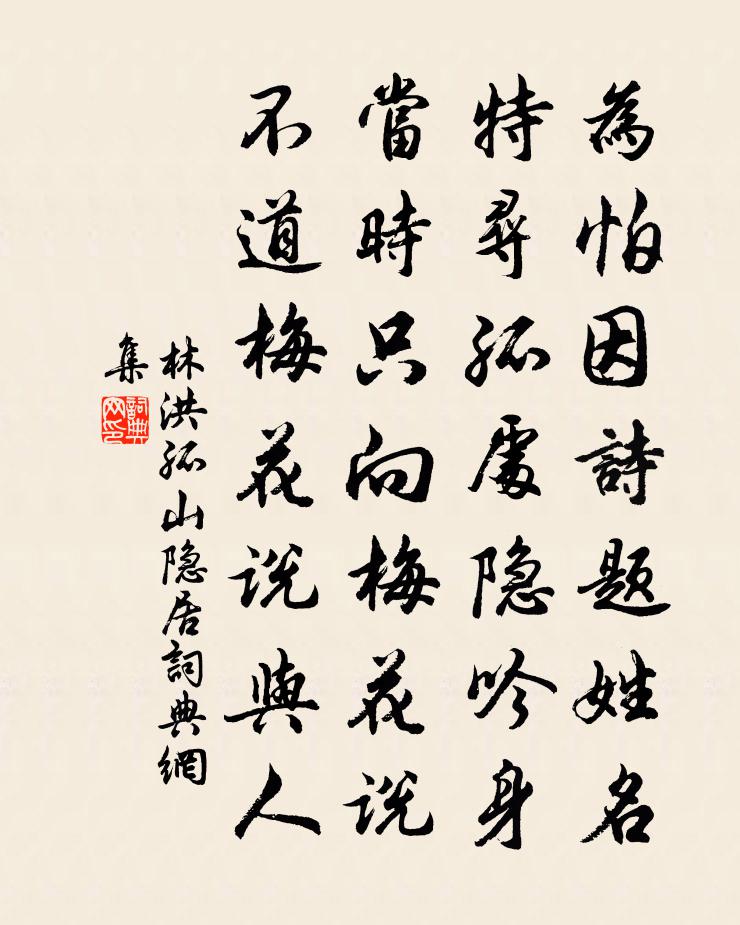 為怕因詩題姓名
特尋孤處隐吟身
當時只向梅花説
不道梅花説與人
林洪孤山隐居詞典網
集
詞典
网印